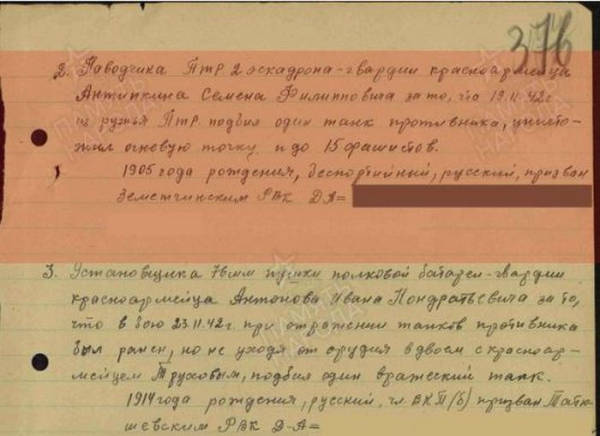 376
2. Наводчика ПТР 2 эскадрона-гвардии красноармейца
Антипкина Семена Филипповича за то, что 19.11.42г.
из ружья ПТР подбил один танк противника, уничто-
жил огневую точку и до 15 фашистов.
1905 года рождения, беспартийный, русский, призван
Земетчинским РВК ДА=
3. Установщика 76мм пушки полковой батареи-гвардии
красноармейца Антонова Ивана Кондратьевича за то,
что в бою 23.11.42г. при отражении танков противника
был ранен, но не уходя от орудия вдвоем с красноар-
мейцем Труховым, подбил один вражеский танк.
1914 года рождения, русский, чл. ВКП(б) призван Татю-
шевским РВК Д-А=
ПАМЯТЬ НАРОДА